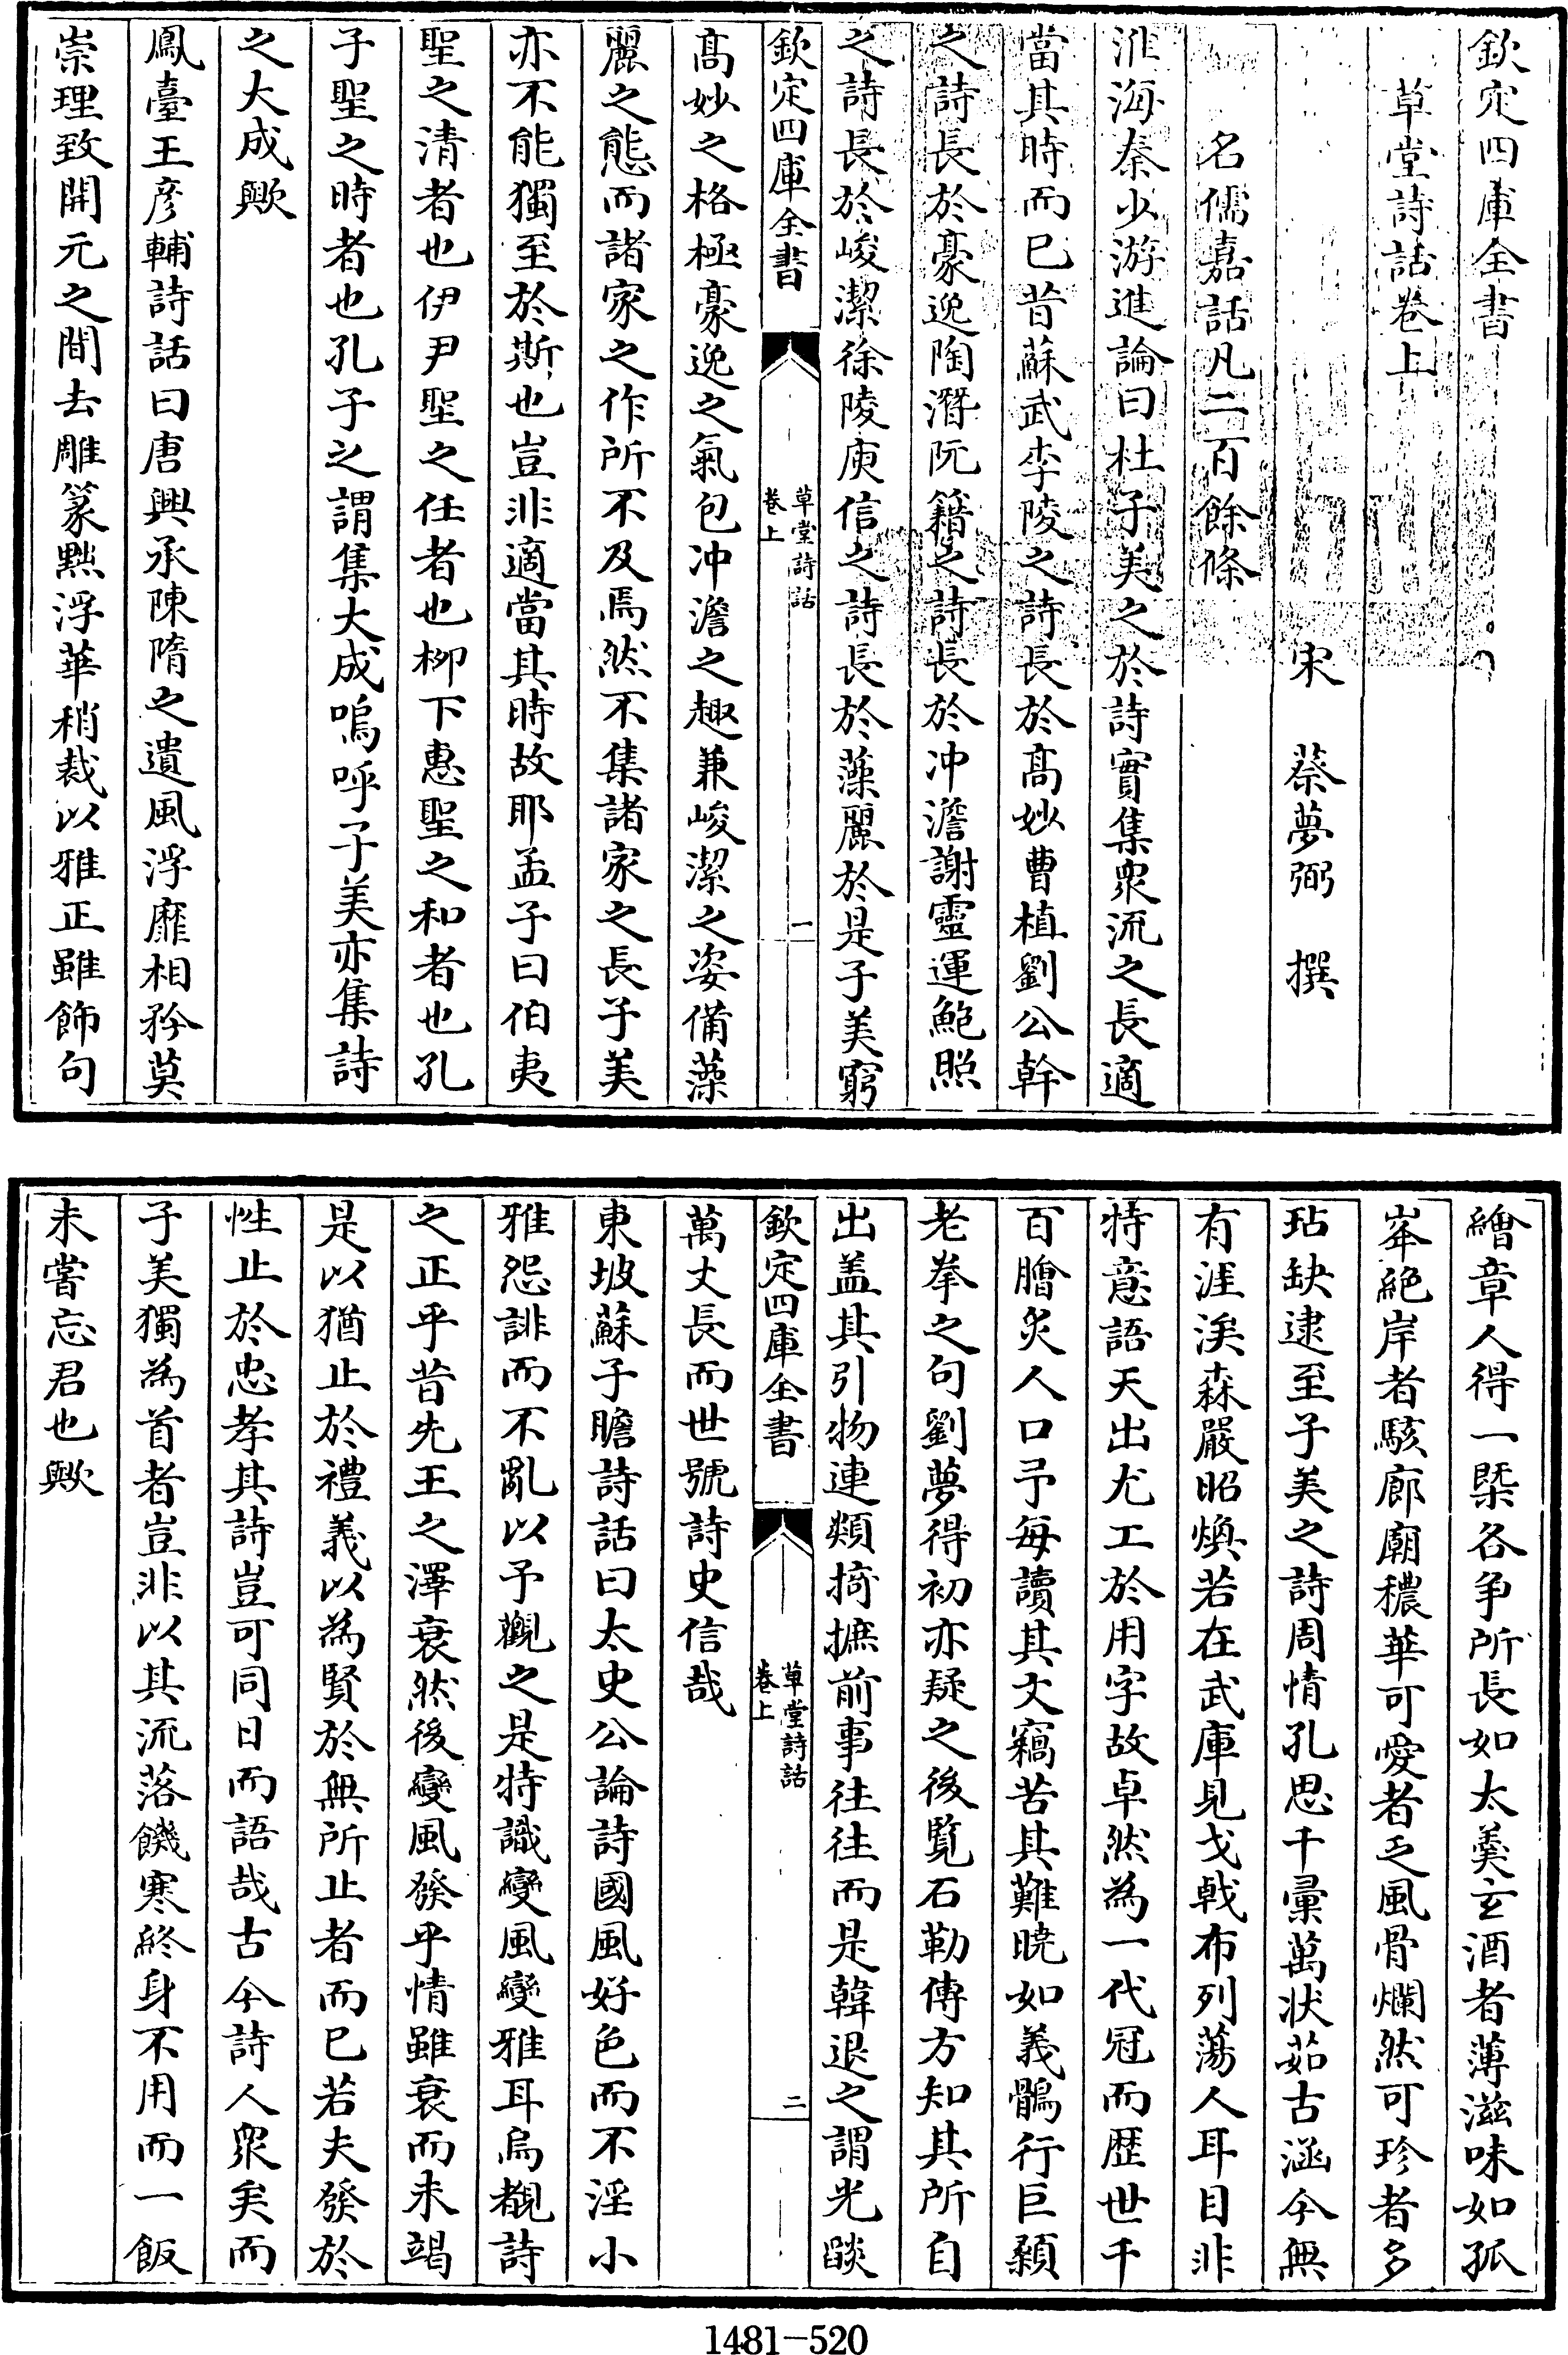 欽定四庫全書
草堂詩話卷上
宋　蔡夢弼　撰
名儒嘉話凡二百餘條
淮海秦少游進論曰杜子美之於詩實集衆流之長適
當其時而已昔蘇武李陵之詩長於髙妙曹植劉公幹
之詩長於豪逸陶潛阮籍之詩長於冲澹謝靈運鮑照
之詩長於峻潔徐陵庾信之詩長於藻麗於是子美窮
欽定四庫全書
草堂詩話
卷上
一
髙妙之格極豪逸之氣包冲澹之趣兼峻潔之姿備藻
麗之態而諸家之作所不及焉然不集諸家之長子美
亦不能獨至於斯也豈非適當其時故耶孟子曰伯夷
聖之清者也伊尹聖之任者也柳下惠聖之和者也孔
子聖之時者也孔子之謂集大成嗚呼子美亦集詩
之大成歟
鳳臺王彦輔詩話曰唐興承陳隋之遺風浮靡相矜莫
崇理致開元之間去雕篆黜浮華稍裁以雅正雖飾句
繪章人得一槩各争所長如太羮玄酒者薄滋味如孤
峯絶岸者駭廊廟穠華可愛者乏風骨爛然可珍者多
玷缺逮至子美之詩周情孔思千彚萬状茹古涵今無
有涯涘森嚴昭煥若在武庫見戈戟布列蕩人耳目非
特意語天出尤工於用字故卓然為一代冠而歴世千
百膾炙人口予每讀其文竊苦其難曉如義鶻行巨顙
老拳之句劉夢得初亦疑之後覧石勒傳方知其所自
出盖其引物連類掎摭前事往往而是韓退之謂光燄
欽定四庫全書
草堂詩話
卷上
二
萬丈長而世號詩史信哉
東坡蘇子瞻詩話曰太史公論詩國風好色而不淫小
雅怨誹而不亂以予觀之是特識變風變雅耳烏覩詩
之正乎昔先王之澤衰然後變風發乎情雖衰而未竭
是以猶止於禮義以為賢於無所止者而已若夫發於
性止於忠孝其詩豈可同日而語哉古今詩人衆矣而
子美獨為首者豈非以其流落饑寒終身不用而一飯
未嘗忘君也歟
1481-520